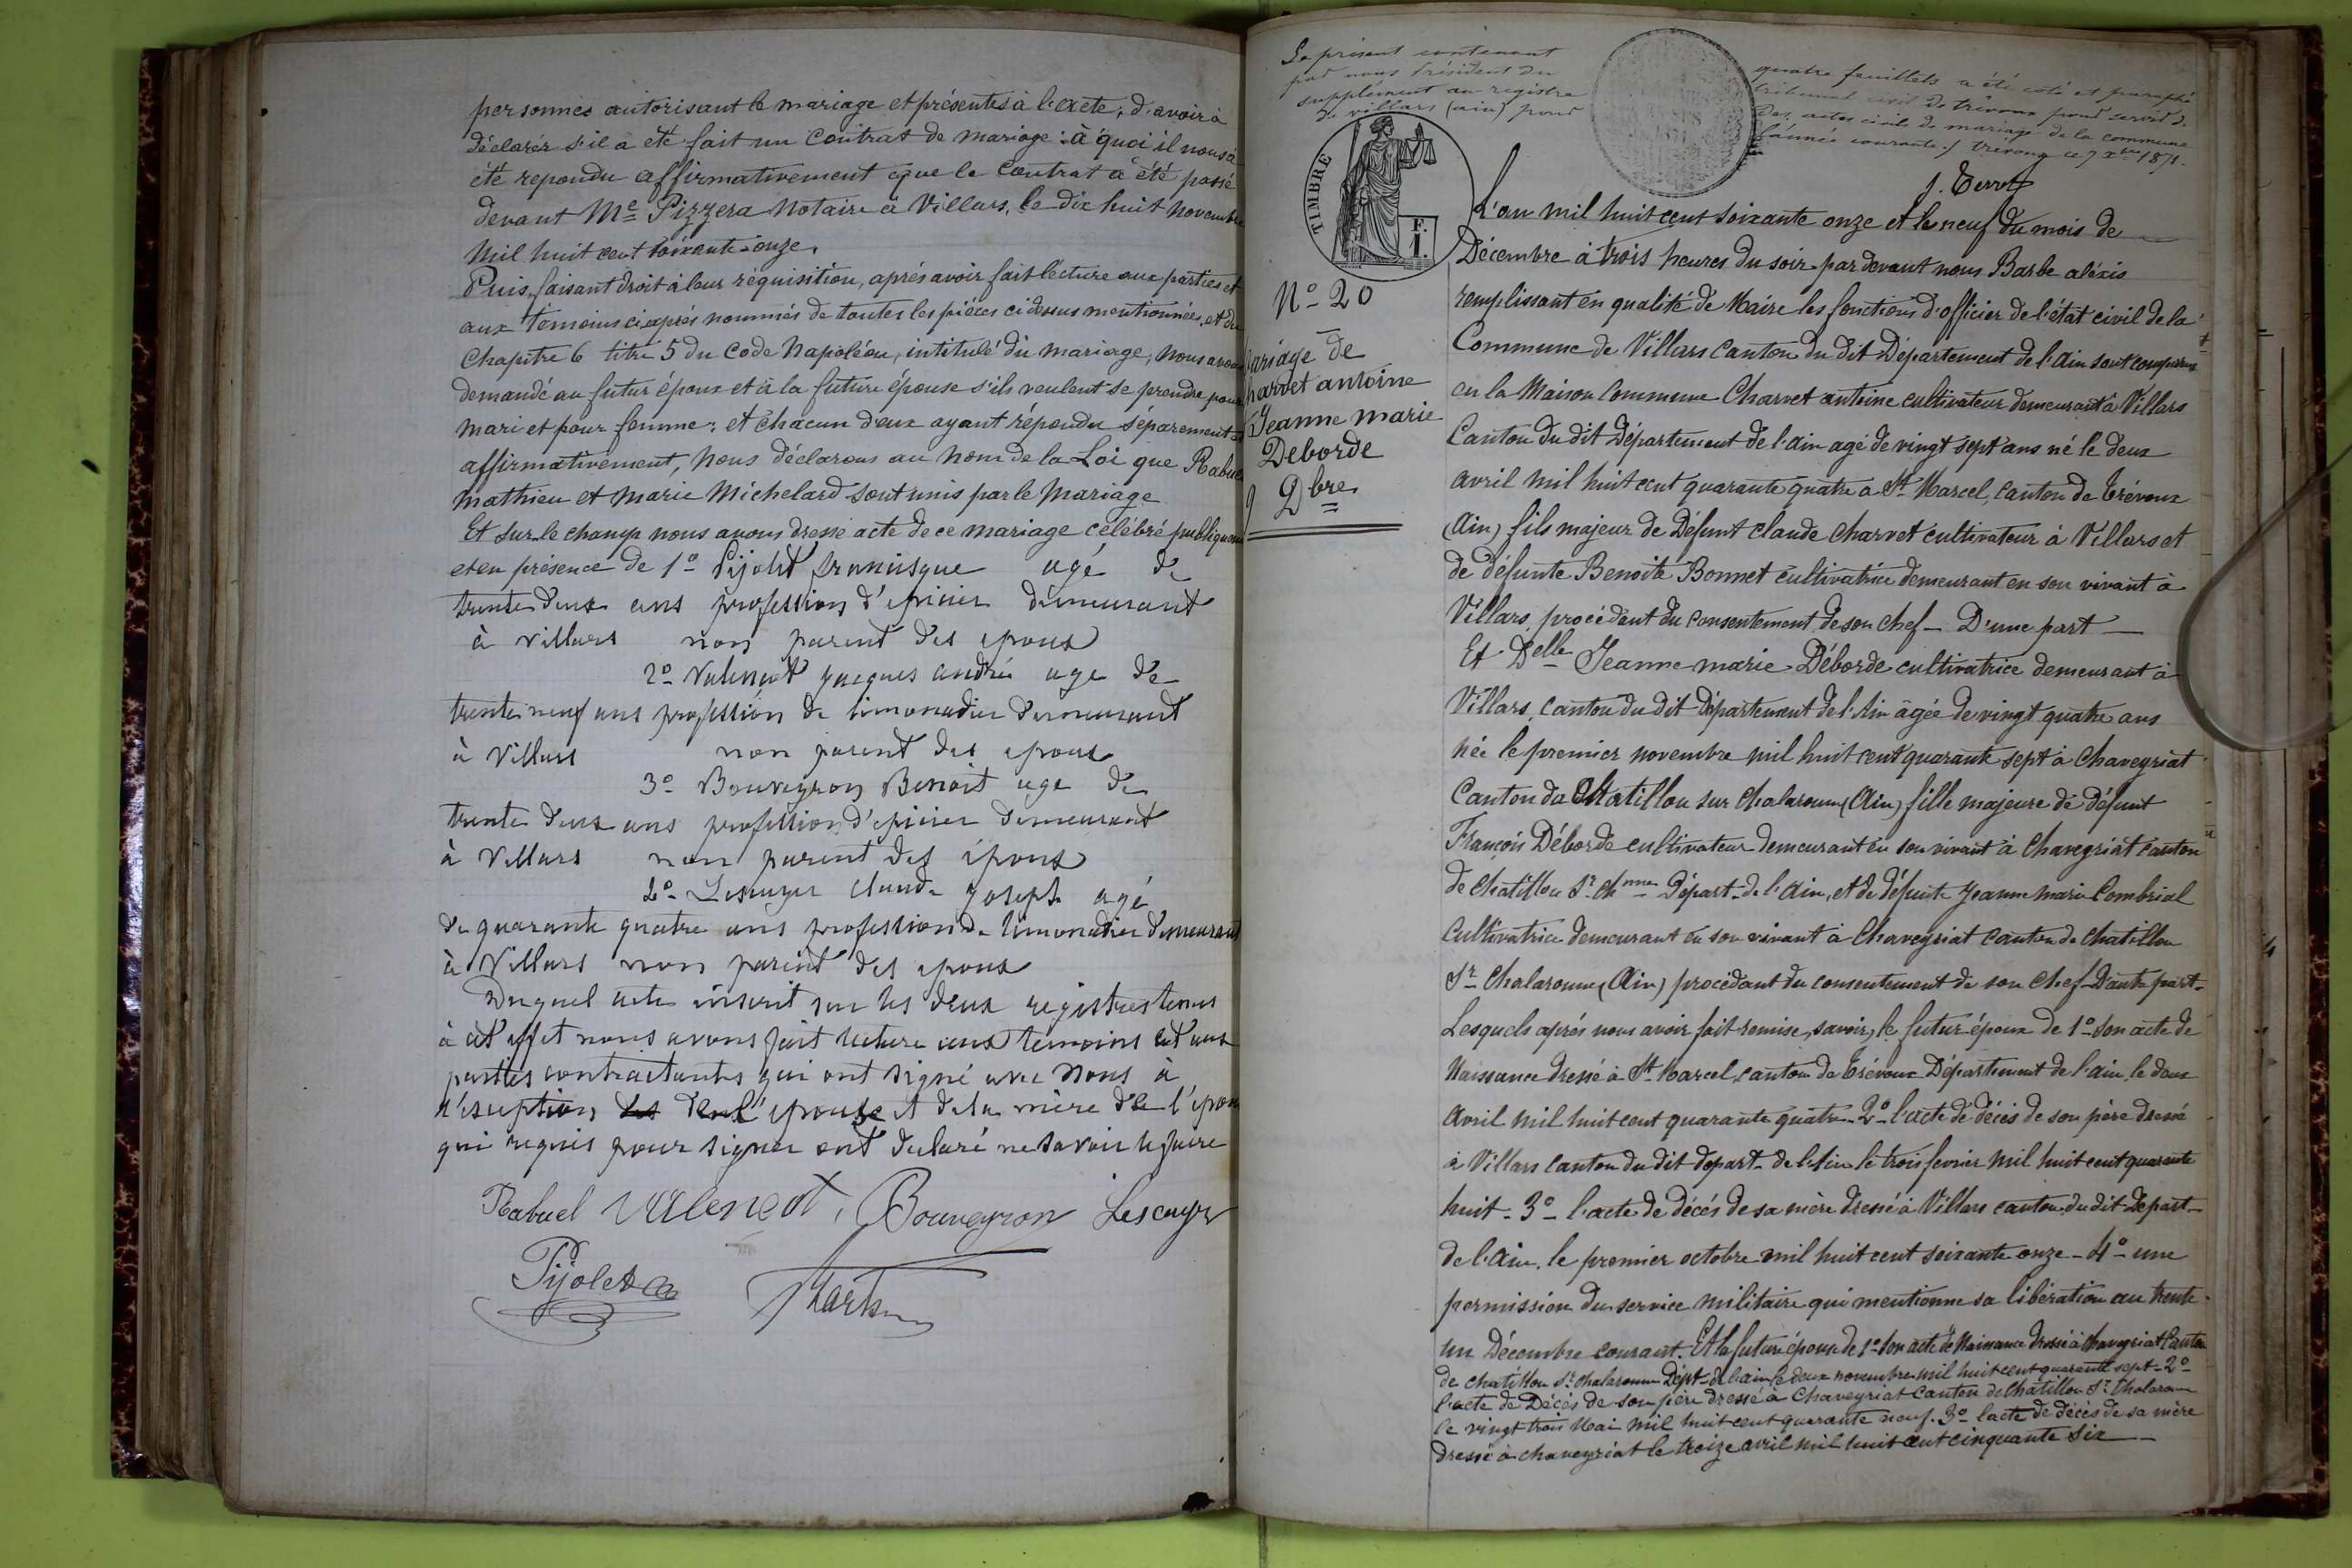 personnes autorisant le mariage et présentes à l'acte, d'avoir à
déclarer s'il a été fait un Contrat de mariage : à quoi il nous a
été repondu affirmativement que le contrat a été passé
devant Me Pizzera Notaire à Villars, le dix huit Novembre
Mil huit cent soixante-onze.
Puis, faisant droit à leur réquisition, après avoir fait lecture aux parties et
aux témoins ci après nommés de toutes les pièces ci dessus mentionnées, et du
Chapitre 6 titre 5 du Code Napoléon, intitulé du mariage, nous avons
demandé au futur époux et à la future épouse s'ils veulent se prendre pour
mari et pour femme ; et chacun d'eux ayant répondu séparement et
affirmativement, Nous déclarons au Nom de la Loi que Rabuel
Mathieu et Marie Michelard sont unis par le Mariage
Et sur le champ nous avons dressé acte de ce mariage célébré publiquem
et en présence de 1o Pijolet francisque agé de
trente deux ans profession d'epicier demeurant
à Villars non parent des epoux
2o Valencot jacques andré age de
trente neuf ans profession de limonadier demeurant
à Villars non parent des epoux
3o Bouveyron Benoit age de
trente deux ans profession d'epicier demeurant
à Villars non parent des époux
Lescuyer Claude joseph agé
de quarante quatre ans profession de limonadier demeurant
à Villars non parent des epoux
Duquel acte inscrit sur les deux registres tenus
à cet effet nous avons fait lecture aux temoins et aux
parties contractantes qui ont signé avec nous à
l'exception de l'epouse et de la mère de l'epoux
qui requis pour signer ont declaré ne savoir le faire
Rabuel Valencot, Bouveyron Lescuyer
Pijolet
Le présent contenant quatre feuillets a été coté et paraphé
par nous Président du tribunal civil de trevoux pour servir de
supplément au registre des actes civils de mariage de la commune
de Villars (ain) pour l'année courante. / trevoux ce 7 xbre 1871.
TIMBRE
F.
1.
L'an mil huit cent soixante onze et le neuf du mois de
Décembre à trois heures du soir par devant nous Barbe aléxis
remplissant en qualité de Maire les fonctions d'officier de l'état civil de la
Commune de Villars Canton du dit Département de l'ain sont comparus
en la Maison Commune Charvet antoine cultivateur demeurant à Villars
Canton du dit Département de l'ain agé de vingt sept ans né le deux
avril mil huit cent quarante quatre à St Marcel, canton de Trévoux
(Ain) fils majeur de Défunt Claude Charvet cultivateur à Villars et
de défunte Benoite Bonnet cultivatrice demeurant en son vivant à
Villars, procédant du consentement de son chef — D'une part —
Et Delle Jeanne marie Déborde cultivatrice demeurant à
Villars, canton du dit Département de l'Ain âgée de vingt quatre ans
née le premier novembre mil huit cent quarante sept à Chaveyriat
Canton de Chatillon sur Chalaronne (Ain) fille majeure de défunt
François Déborde cultivateur demeurant en son vivant à Chaveyriat canton
de Chatillon sr Chnne Départ- de l'Ain, et de défunte Jeanne marie Combrial
Cultivatrice demeurant en son vivant à Chaveyriat canton de Chatillon
sr Chalaronne (Ain) procédant du consentement de son chef D'autre part-
Lesquels après nous avoir fait remise, savoir, le futur époux de 1o son acte de
Naissance dressé à St Marcel, canton de Trévoux Département de l'ain, le deux
avril mil huit cent quarante quatre - 2o l'acte de décès de son père dressé
à Villars canton du dit départ- de l'Ain le trois fevrier mil huit cent quarante
huit - 3o - l'acte de décès de sa mère dressé à Villars canton du dit Départ-
de l'Ain, le premier octobre mil huit cent soixante onze - 4o une
permission du service militaire qui mentionne sa libération au trente
un Décembre courant. Et la future épouse de 1o son acte de Naissance dressé à Chaveyriat Canton
de Chatillon sr Chalaronne Dépt- de l'ain le deux novembre mil huit cent quarante sept - 2o
l'acte de Décès de son père dressé à Chaveyriat Canton de Chatillon sr Chalaronne
le vingt trois Mai mil huit cent quarante neuf. 3o l'acte de décès de sa mère
dressé à Chaveyriat le treize avril mil huit cent cinquante six
No 20
ariage de
harvet antoine
Jeanne marie
Deborde
9 Dbre